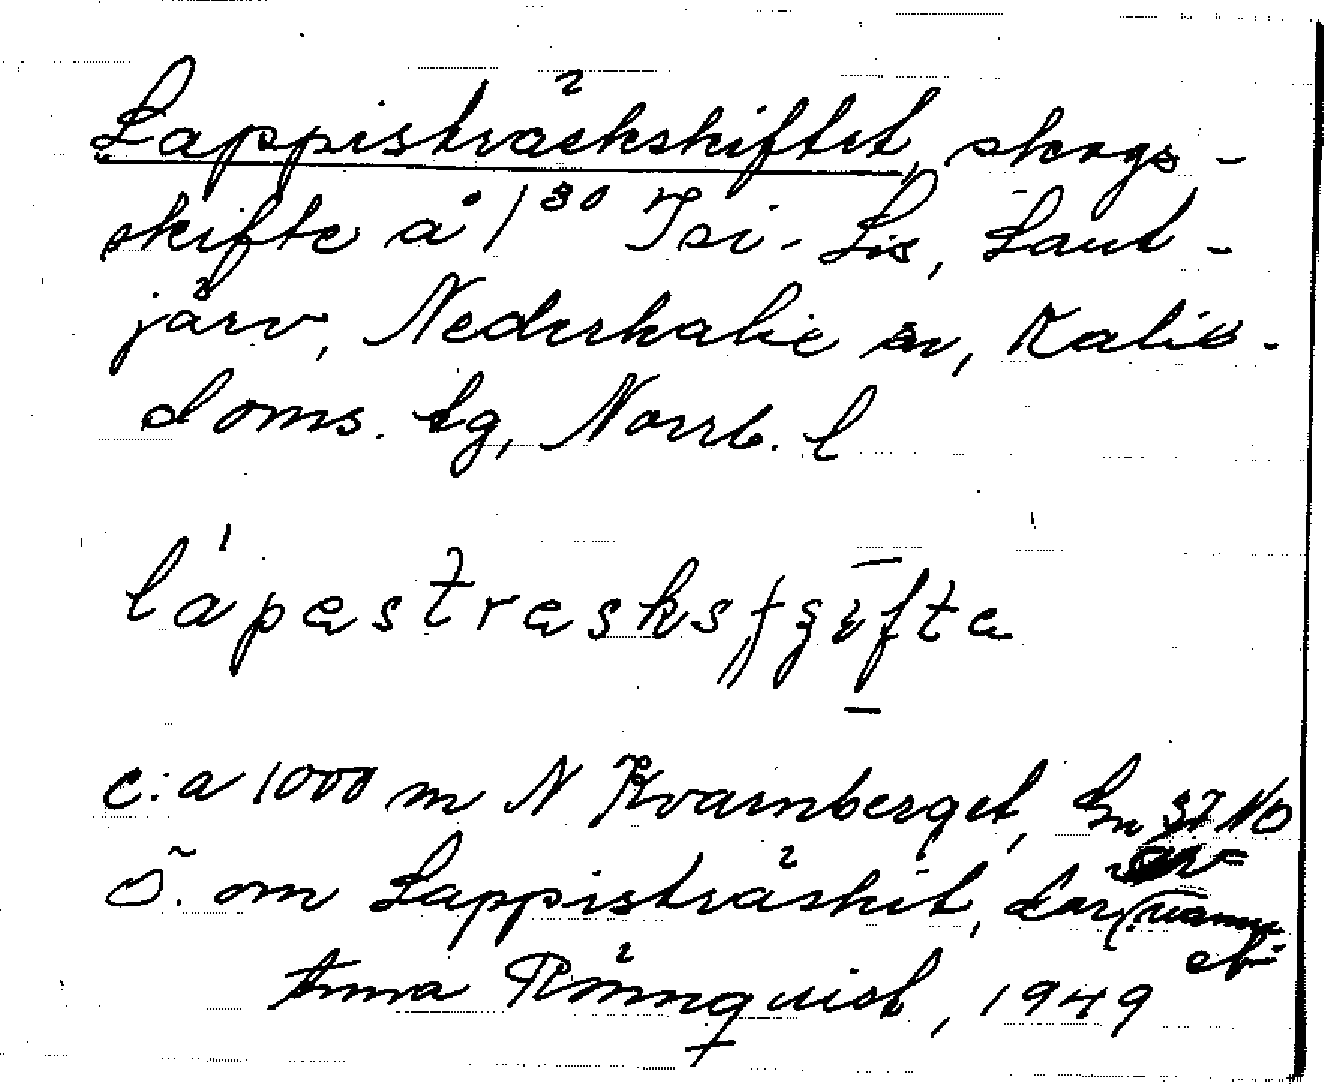 Lappisträckskiftet, skogs-
skifte å 1³⁰ Isi-Lis, Laut-
järv, Nederkalix sn, Kalix-
doms. tg, Norrb. l
lápæstræsksʃʒifta
c:a 1000 m N Kvarnberget, 37 NO
Ö. om Lappisträsket, där
Anna Rönnquist, 1949